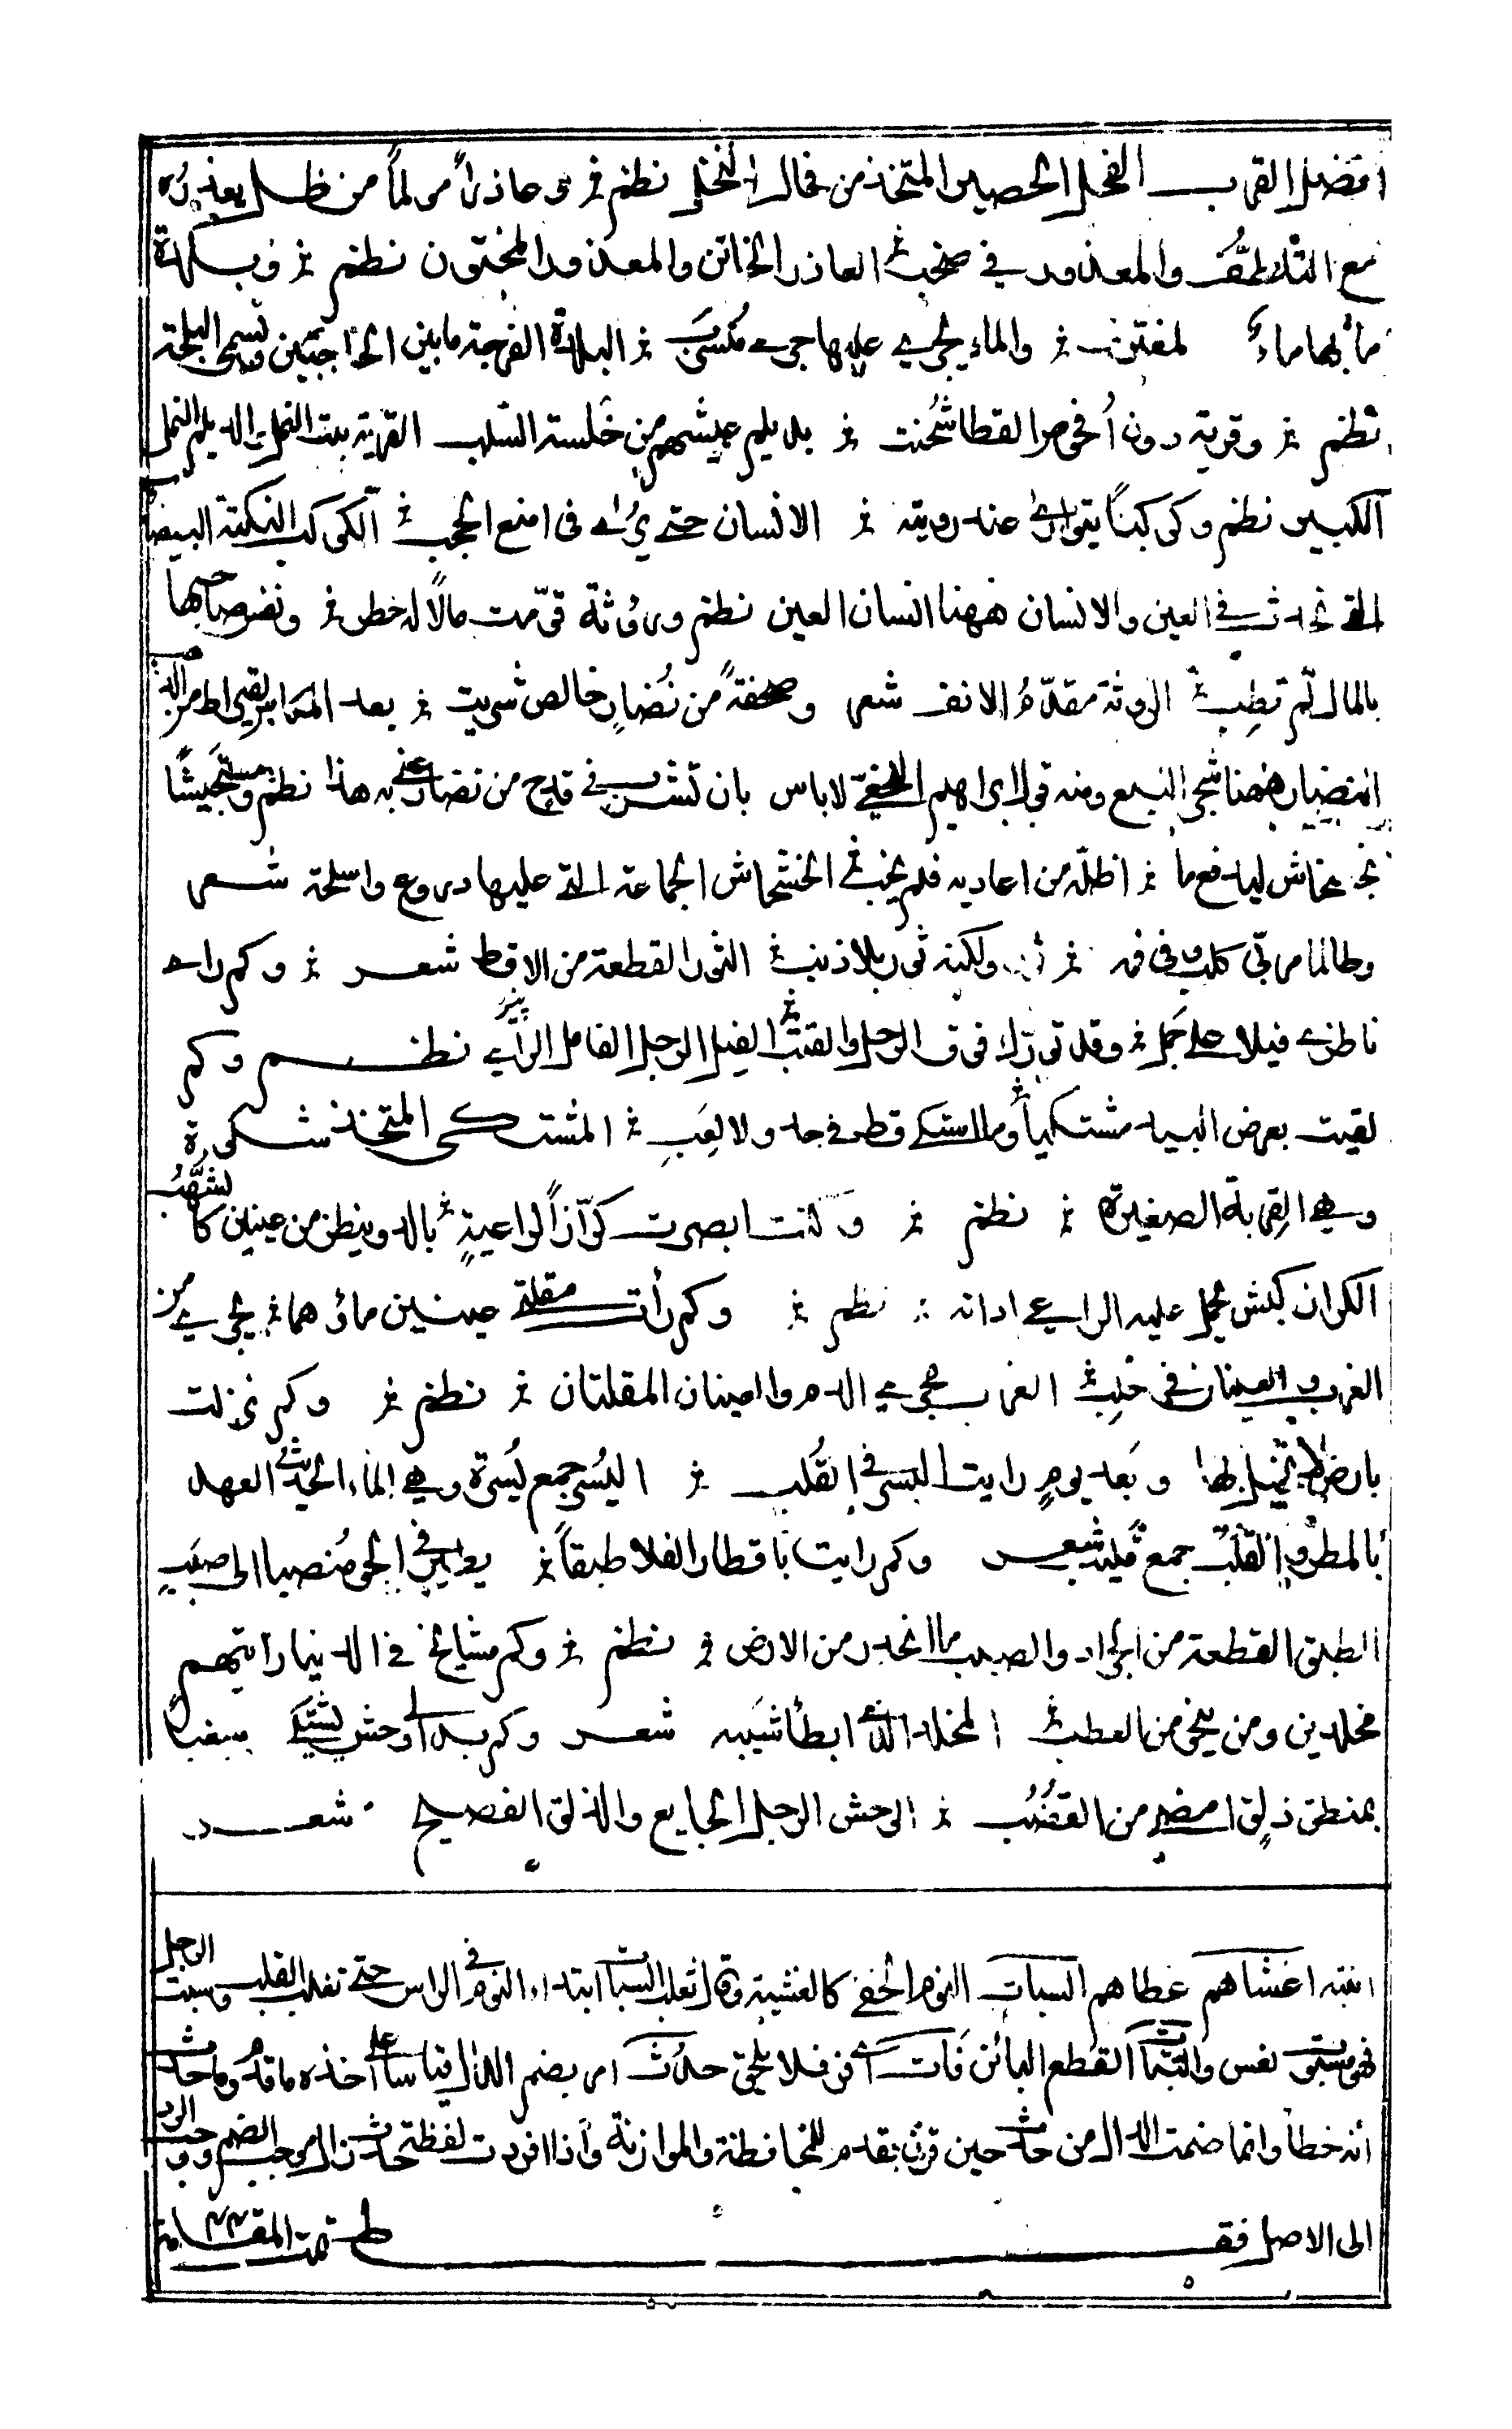 افضل القرب الفحل الحصير المتخذ من فحال النخل نظم وعاذرا مولما من ظل يعذره
مع التلطف والمعذور في صخب العاذر الخاتن والمعذور المختون نظم وبلدة
ما بها ماء لمغترف والماء يجري عليها جري منسرب البلدة الفرجة ما بين الحاجبين وتسمى البلجة
نظم وقرية دون أفحوص القطا شحنت بديلم عيشهم من خلسة السلب القرية بيت النمل والديلم النمل
الكبير نظم وكوكبا يتوارى عند رويته الانسان حتى يرى في امنع الحجب الكوكب النكتة البيضا
التي تحدث في العين والانسان ههنا انسان العين نظم وروثة قومت مالا له خطر ونفس صاحبها
بالمال لم تطب الروثة مقدم الانف شعر وصحفة من نضار خالص شريت بعد المكاس بقيراط من الذهب
النضار ههنا شجر النبع ومنه قول ابراهيم النخعي لا باس بان تشرب في قدح من نضار عنى به هذا نظم ومستجيشا
بخشخاش ليدفع ما اظله من اعاديه فلم يخب الخشخاش الجماعة التي عليها دروع واسلحة شعر
وطالما مر بي كلب وفي فمه ثور ولكنه ثور بلا ذنب الثور القطعة من الاقط شعر وكم راى
ناظري فيلا على جمل وقد تورك فوق الرحل والقتب الفيل الرجل الفايل الرأي نظم وكم
لقيت بعرض البيد مشتكيا وما اشتكى قط في جد ولا لعب المشتكي المتخذ شكوة
وهي القربة الصغيرة نظم وكنت ابصرت كرازا لراعية بالدو ينظر من عينين كالشهب
الكراز كبش يحمل عليه الراعي اداته نظم وكم رأت مقلتي عينين ماؤهما يجري من
الغرب والعينان في حلب الغرب مجرى الدمع والعينان المقلتان نظم وكم نزلت
بارض لا نخيل بها وبعد يوم رايت البسر في القلب البسر جمع بسرة وهي الماء الحديث العهد
بالمطر والقلب جمع قليب شعر وكم رايت باقطار الفلا طبقا يطير في الجو منصبا الى صبب
الطبق القطعة من الجراد والصبب ما انحدر من الارض نظم وكم مشايخ في الدنيا رايتهم
مخلدين ومن ينجو من العطب المخلد الذي ابطأ شيبه شعر وكم بدا لي وحش يشتكي سغبا
بمنطق ذلق امضى من القضب الوحش الرجل الجايع والذلق الفصيح شعر
انتبه اغشاهم غطاهم السبات النوم الخفي كالغشية وقال ثعلب السبات ابتداء النوم في الراس حتى تغلب القلب وسبت الرجل
فهو مسبوت نفس والتبتات القطع البائن فات اي فر فلا يلحق حدث امر بضم الدال قياسا على اخذه ما قدم وما حدث
أنه خطأ وانما ضمت الدال من حدث حين قرن بقدم للمحافظة والموازنة واذا افردت لفظة حدث زال موجب الضم ووجب الرد
الى الاصل فقط تمت المقامة ٤٣